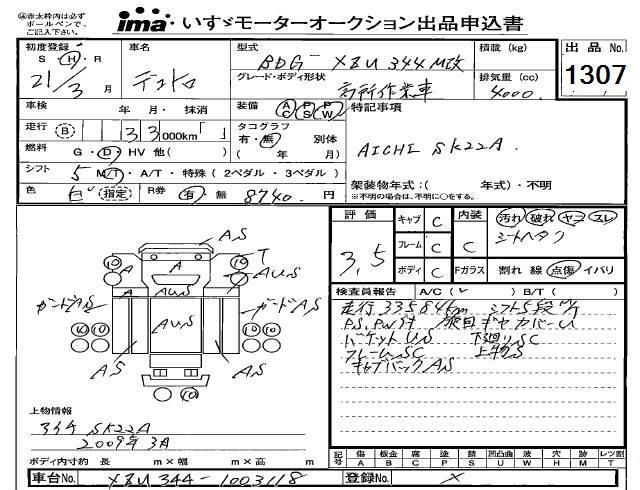 ㊟赤太枠内は必ず
ボールペンで、
ご記入下さい。
ima いすゞモーターオークション出品申込書
初度登録 S H R
21/3 月
車名 デュトロ
型式 BDG-XZU344M改
グレード・ボディ形状 高所作業車
積載 (kg)
排気量 (cc)
4000
出品No.
1307
車検 年 月・抹消
装備 AC PS PW
特記事項
走行 B 33000km「 」
タコグラフ 有・無 別体
( 年 月)
AICHI SK22A
燃料 G・D・HV 他( )
シフト 5 M/T・A/T・特殊(2ペダル・3ペダル)
架装物年式:( 年式)・不明
※不明の場合は、不明に○をする。
色 白 指定 R券 有・無 8740 円
評価 3.5
キャブ C
フレーム C
ボディ C
内装 C
Fガラス
汚れ 破れ ヤニ スレ
シートヘタリ
割れ 線 点傷 イバリ
検査員報告 A/C(レ ) B/T( )
走行33584km シフト5段M/T
P.S, P.W付
下廻りSC
フレームSC 上物S
キャブバックAS
AS
T
AUS
A
A
A
AUS
ガードAS
ガードAS
AS
AS
10
10
10
10
10
上物情報
アイチ SK22A
2009年3月
ボディ内寸約 長 m×幅 m×高 m
記号 傷A 板金B 腐C 塗P 錆S 凹凸曲U 波W 穴H 跡M レツ割T
車台No. XZU344-1003118
登録No. ×